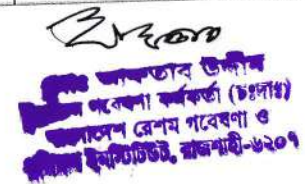 আফতাব উদ্দীন
গবেষণা কর্মকর্তা (চঃদাঃ)
রেশম গবেষণা ও
ইনস্টিটিউট, রাজশাহী-৬২০৭